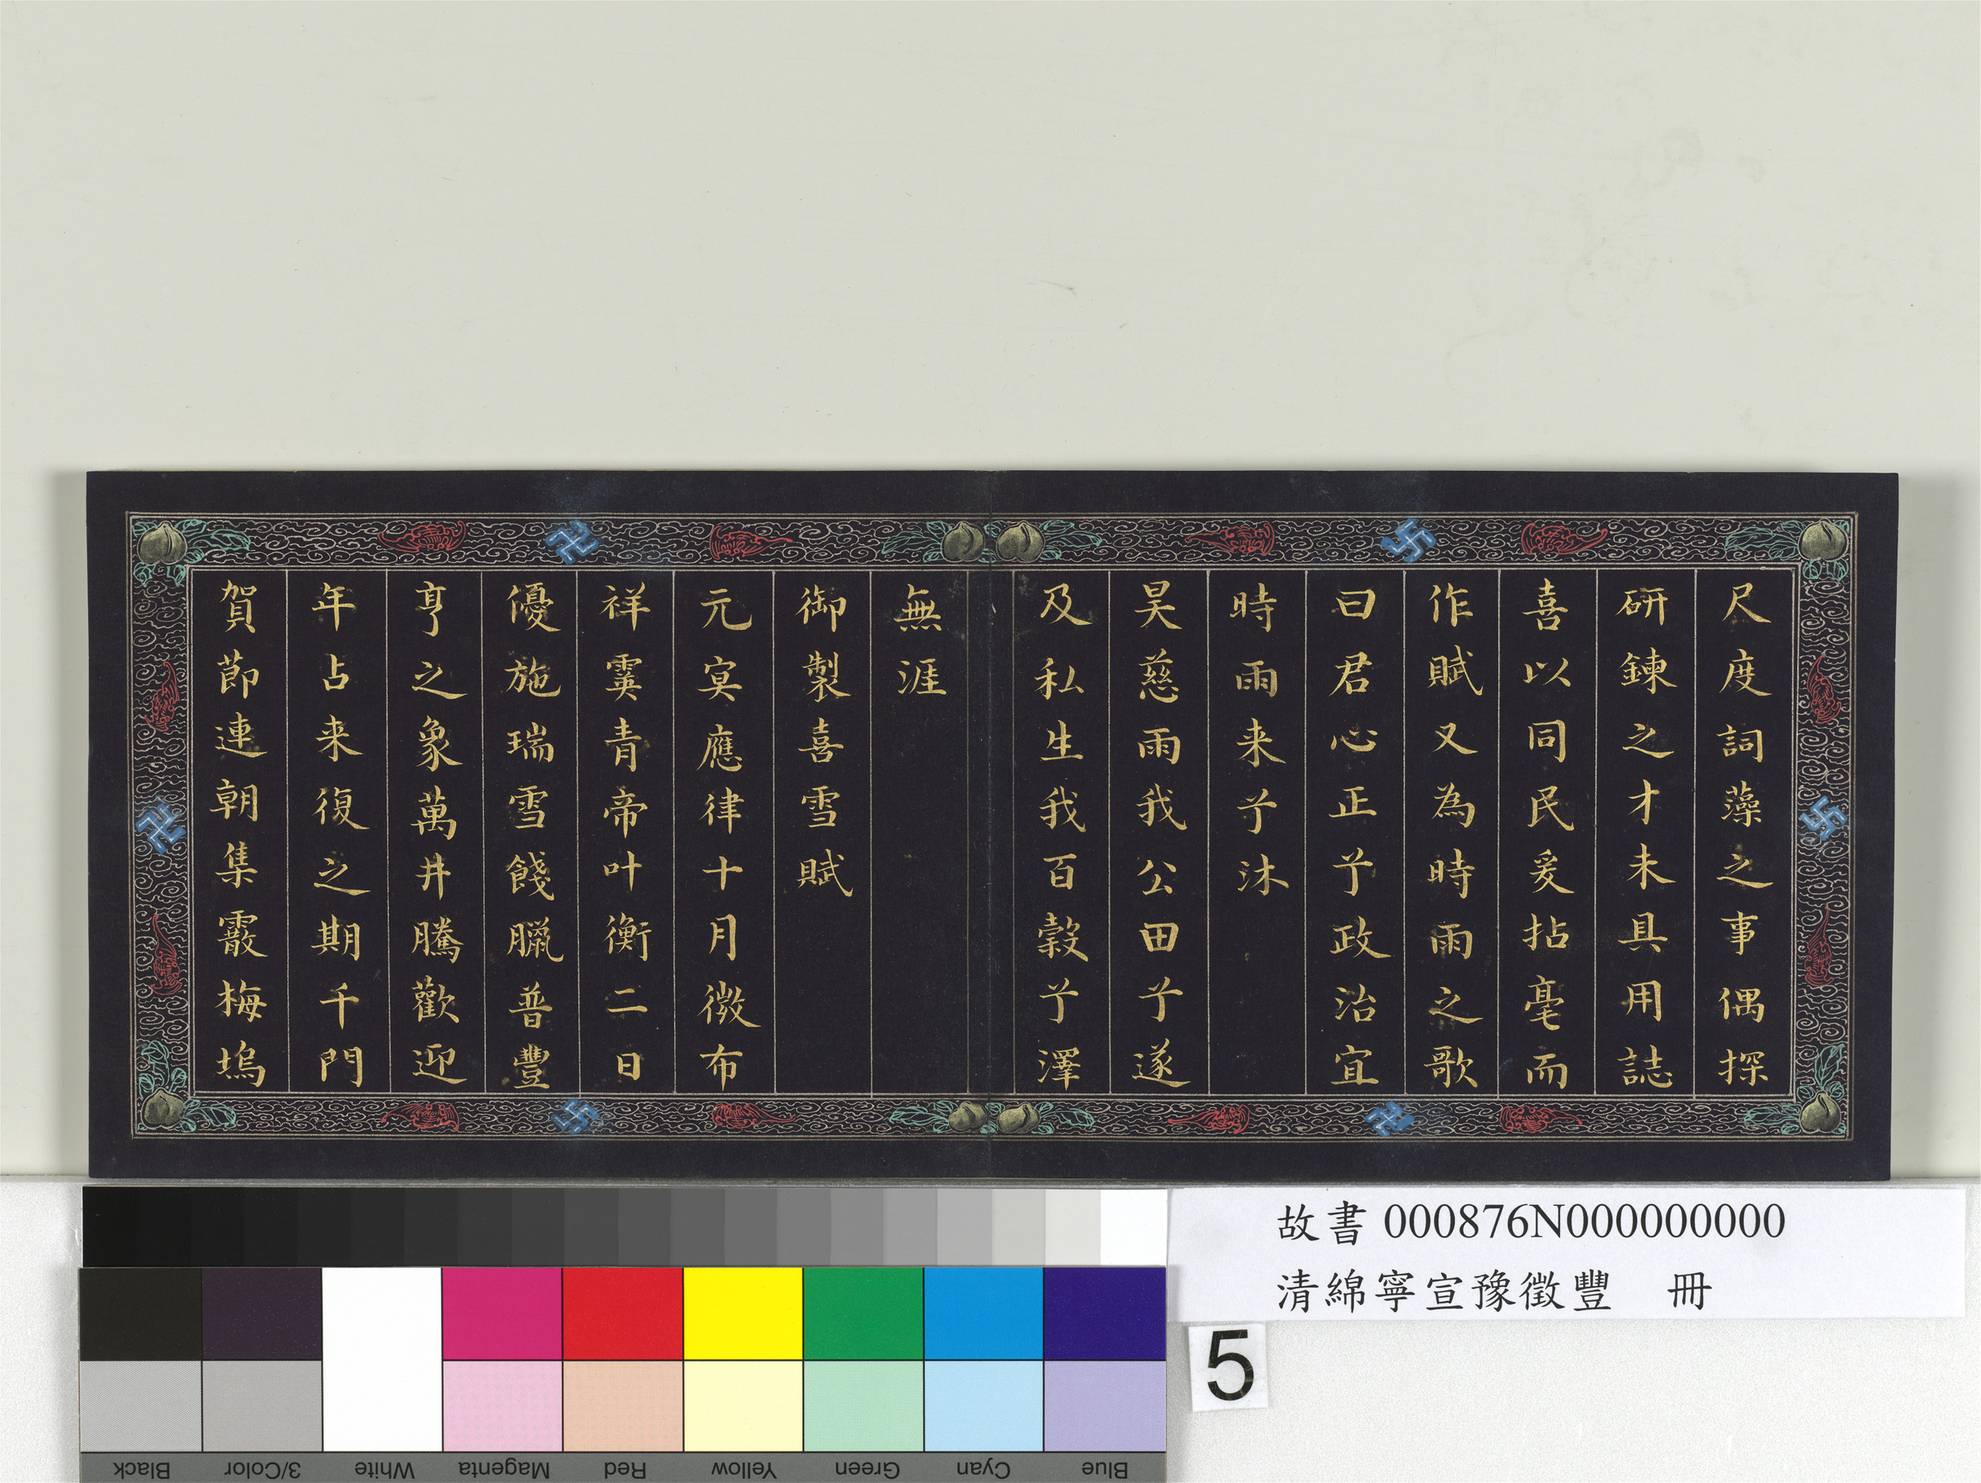 尺度詞藻之事偶探
研鍊之才未具用誌
喜以同民爰拈毫而
作賦又為時雨之歌
曰君心正兮政治宜
時雨来兮沐
昊慈雨我公田兮遂
及私生我百穀兮澤
無涯
御製喜雪賦
元冥應律十月徴布
祥霙青帝叶衡二日
優施瑞雪餞臘普豐
亨之象萬井騰歡迎
年占来復之期千門
賀節連朝集霰梅塢
故書 000876N000000000
清綿寧宣豫徵豐 冊
5
Black
3/Color
White
Magenta
Red
Yellow
Green
Cyan
Blue